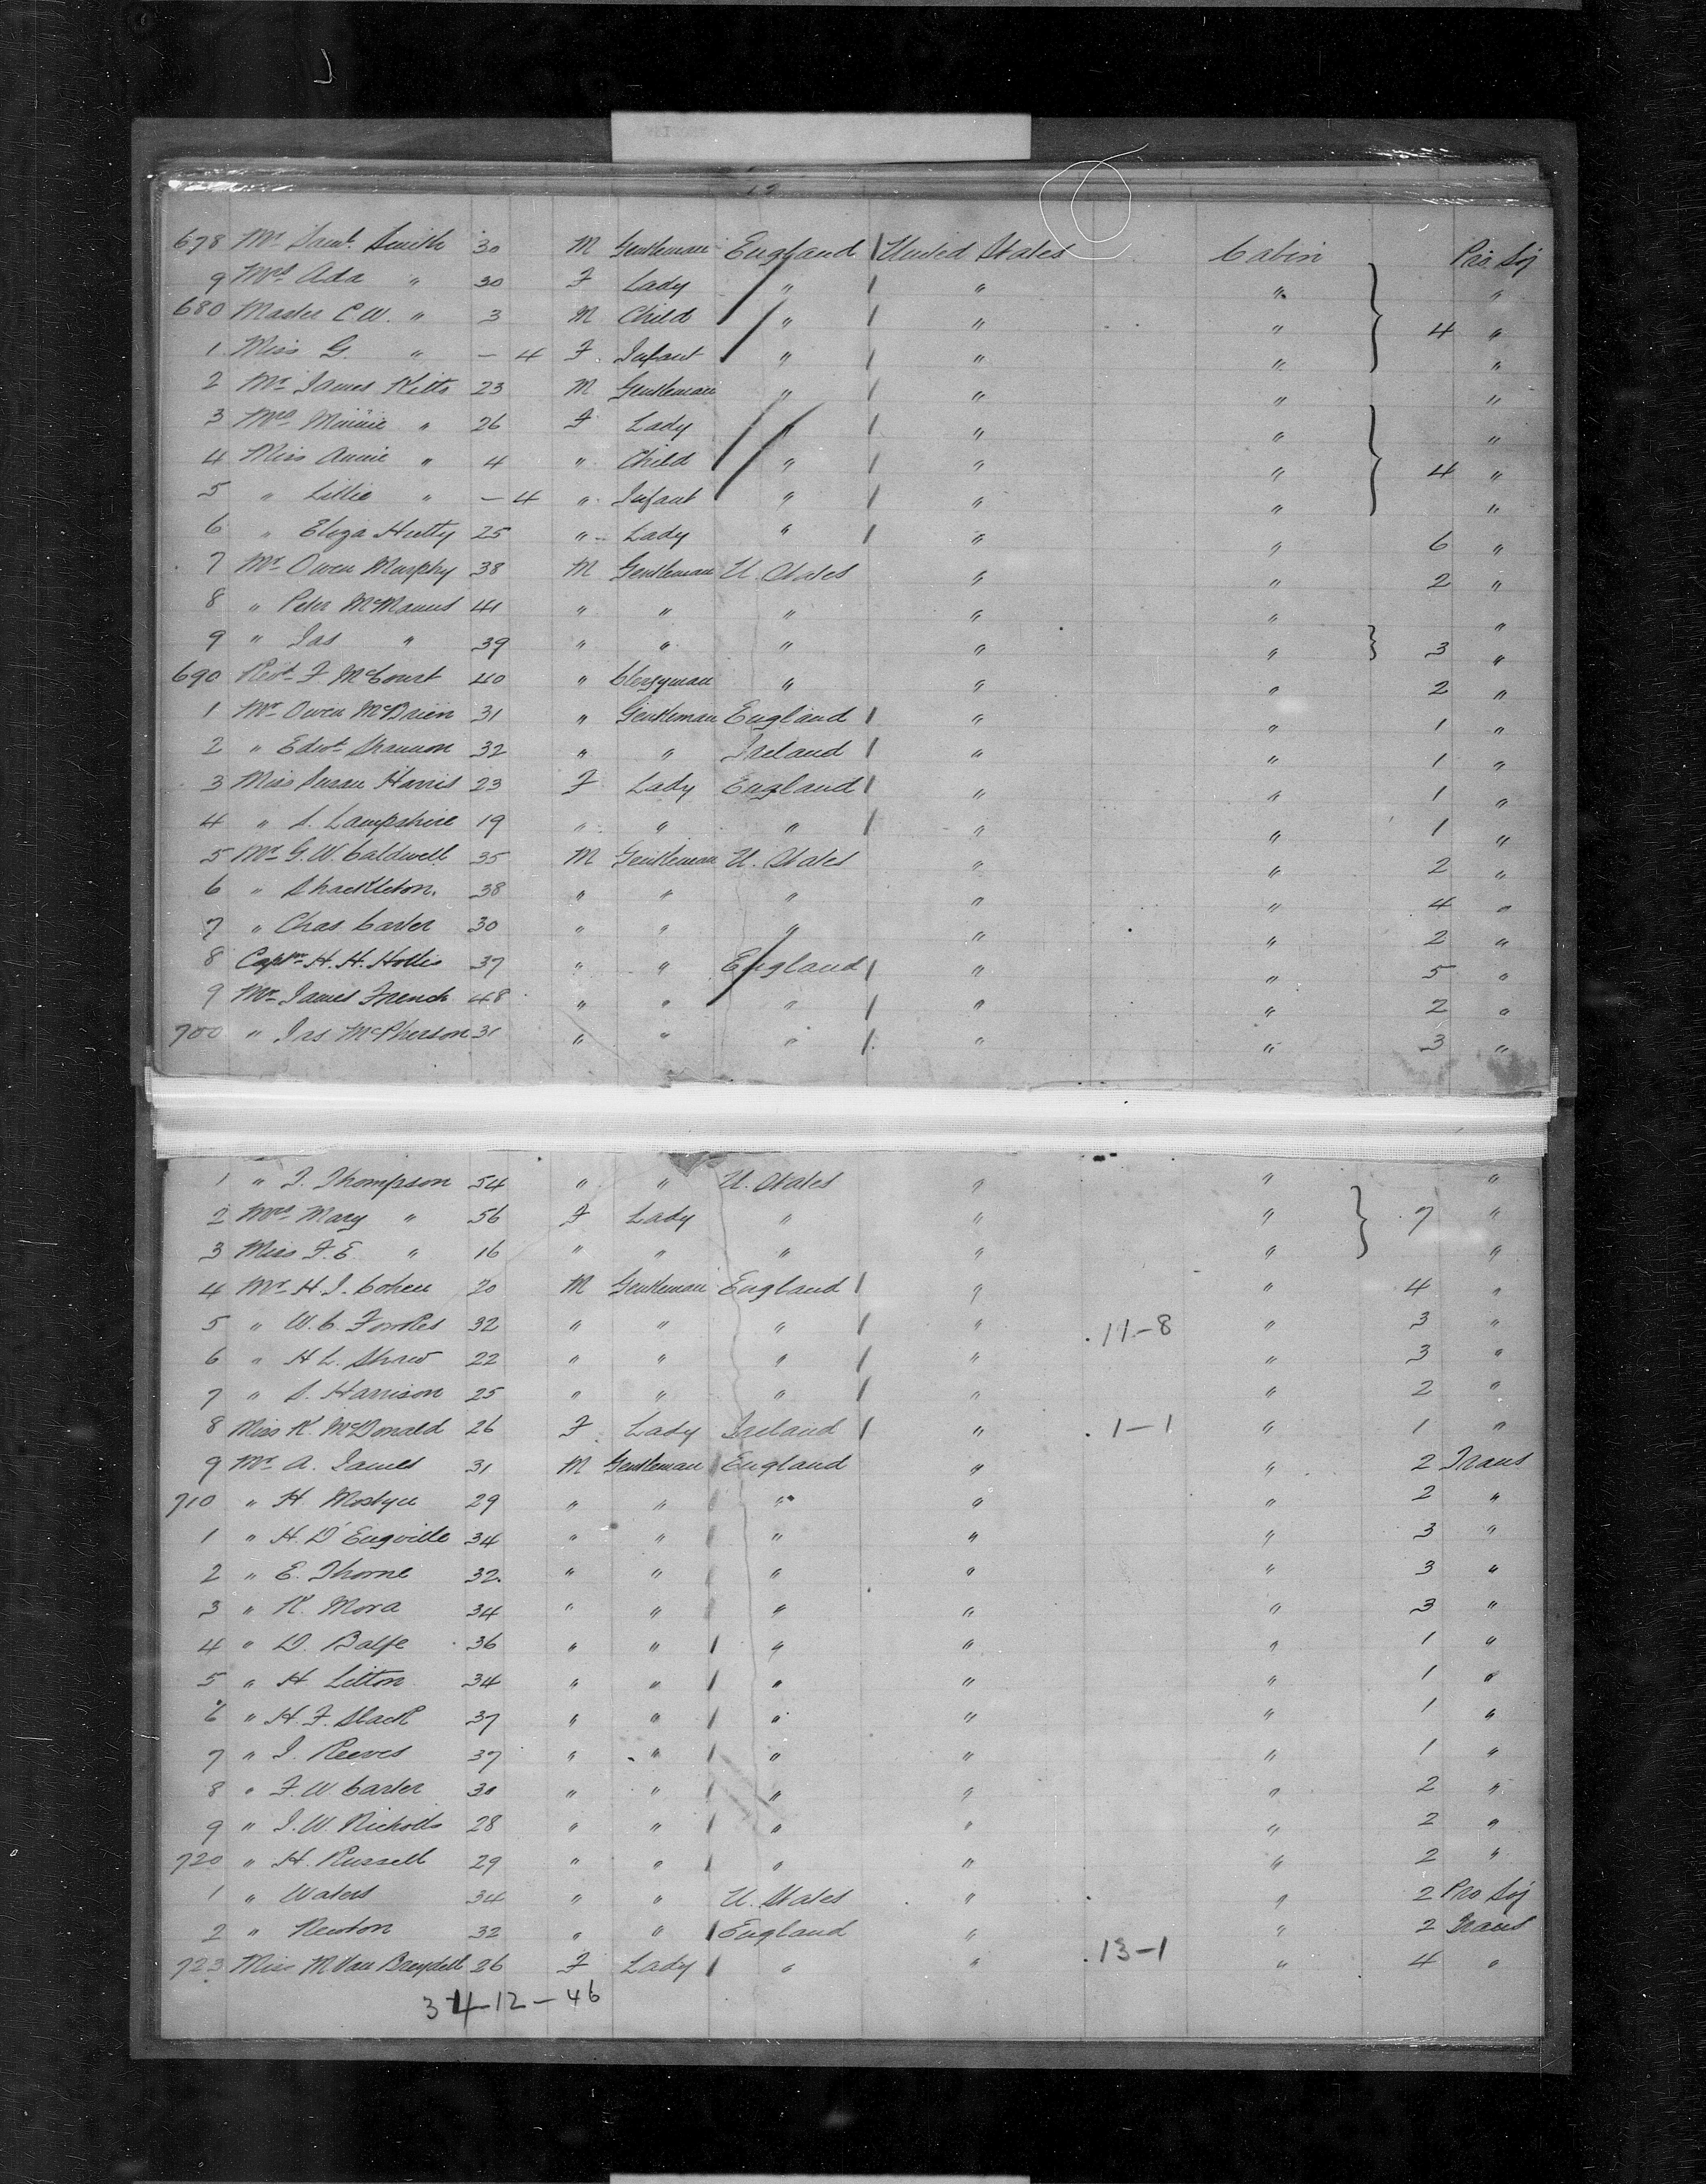 678 Mr Saml. Smith 30 M Gentleman England / United States Cabin Pro Soj
9 Mrs Ada " 30 F Lady " / " " "
680 Master C.W. " 3 M Child " / " " 4 "
1 Miss G. " — 4 F. Infant " / " " "
2 Mr James Kitts 23 M Gentleman " / " " "
3 Mrs Minnie " 26 F Lady " / " " "
4 Miss Annie " 4 " Child " / " " 4 "
5 " Lillie " — 4 " Infant " / " " "
6 " Eliza Hutty 25 " Lady " / " " 6 "
7 Mr Owen Murphy 38 M Gentleman U. States " " 2 "
8 " Peter McManus 41 " " " " " "
9 " Jas " 39 " " " " " 3 "
690 Revd F McCourt 40 " Clergyman " " " 2 "
1 Mr Owen McBrien 31 " Gentleman England / " " 1 "
2 " Edwd Shannon 32 " " Ireland / " " 1 "
3 Miss Susan Harris 23 F Lady England / " " 1 "
4 " S. Lampshire 19 " " " / " " 1 "
5 Mr G.W. Caldwell 35 M Gentleman U. States " " 2 "
6 " Shackleton. 38 " " " " " 4 "
7 " Chas Carter 30 " " " " " 2 "
8 Captn H. H. Hollis 37 " " England / " " 5 "
9 Mr James French 48 " " " / " " 2 "
700 " Jas McPherson 31 " " " / " " 3 "
1 " J. Thompson 54 " " U. States " " "
2 Mrs Mary " 56 F Lady " " " 7 "
3 Miss F. E. " 16 " " " " " "
4 Mr H. J. Cohen 20 M Gentleman England / " " 4 "
5 " W. C. Fowkes 32 " " " / " 11-8 " 3 "
6 " H L. Shaw 22 " " " / " " 3 "
7 " S. Harrison 25 " " " / " " 2 "
8 Miss K. McDonald 26 F Lady Ireland / " 1-1 " 1 "
9 Mr A. James 31 M Gentleman / England " " 2 Trans
710 " H. Mostyn 29 " " / " " " 2 "
1 " H. D'Engville 34 " " / " " " 3 "
2 " E. Thorne 32. " " / " " " 3 "
3 " K. Mora 34 " " / " " " 3 "
4 " D. Balfe 36 " " / " " " 1 "
5 " H Litton 34 " " / " " " 1 "
6 " H. F. Slack 37 " " / " " " 1 "
7 " J. Reeves 37 " " / " " " 1 "
8 " F. W. Carter 30 " " / " " " 2 "
9 " J. W. Nicholls 28 " " / " " " 2 "
720 " H. Russell 29 " " / " " " 2 "
1 " Waters 34 " " U. States " " 2 Pro Soj
2 " Newton 32 " " / England " " 2 Trans
723 Miss M Van Breydell 26 F Lady / " " 13-1 " 4 "
34-12-46